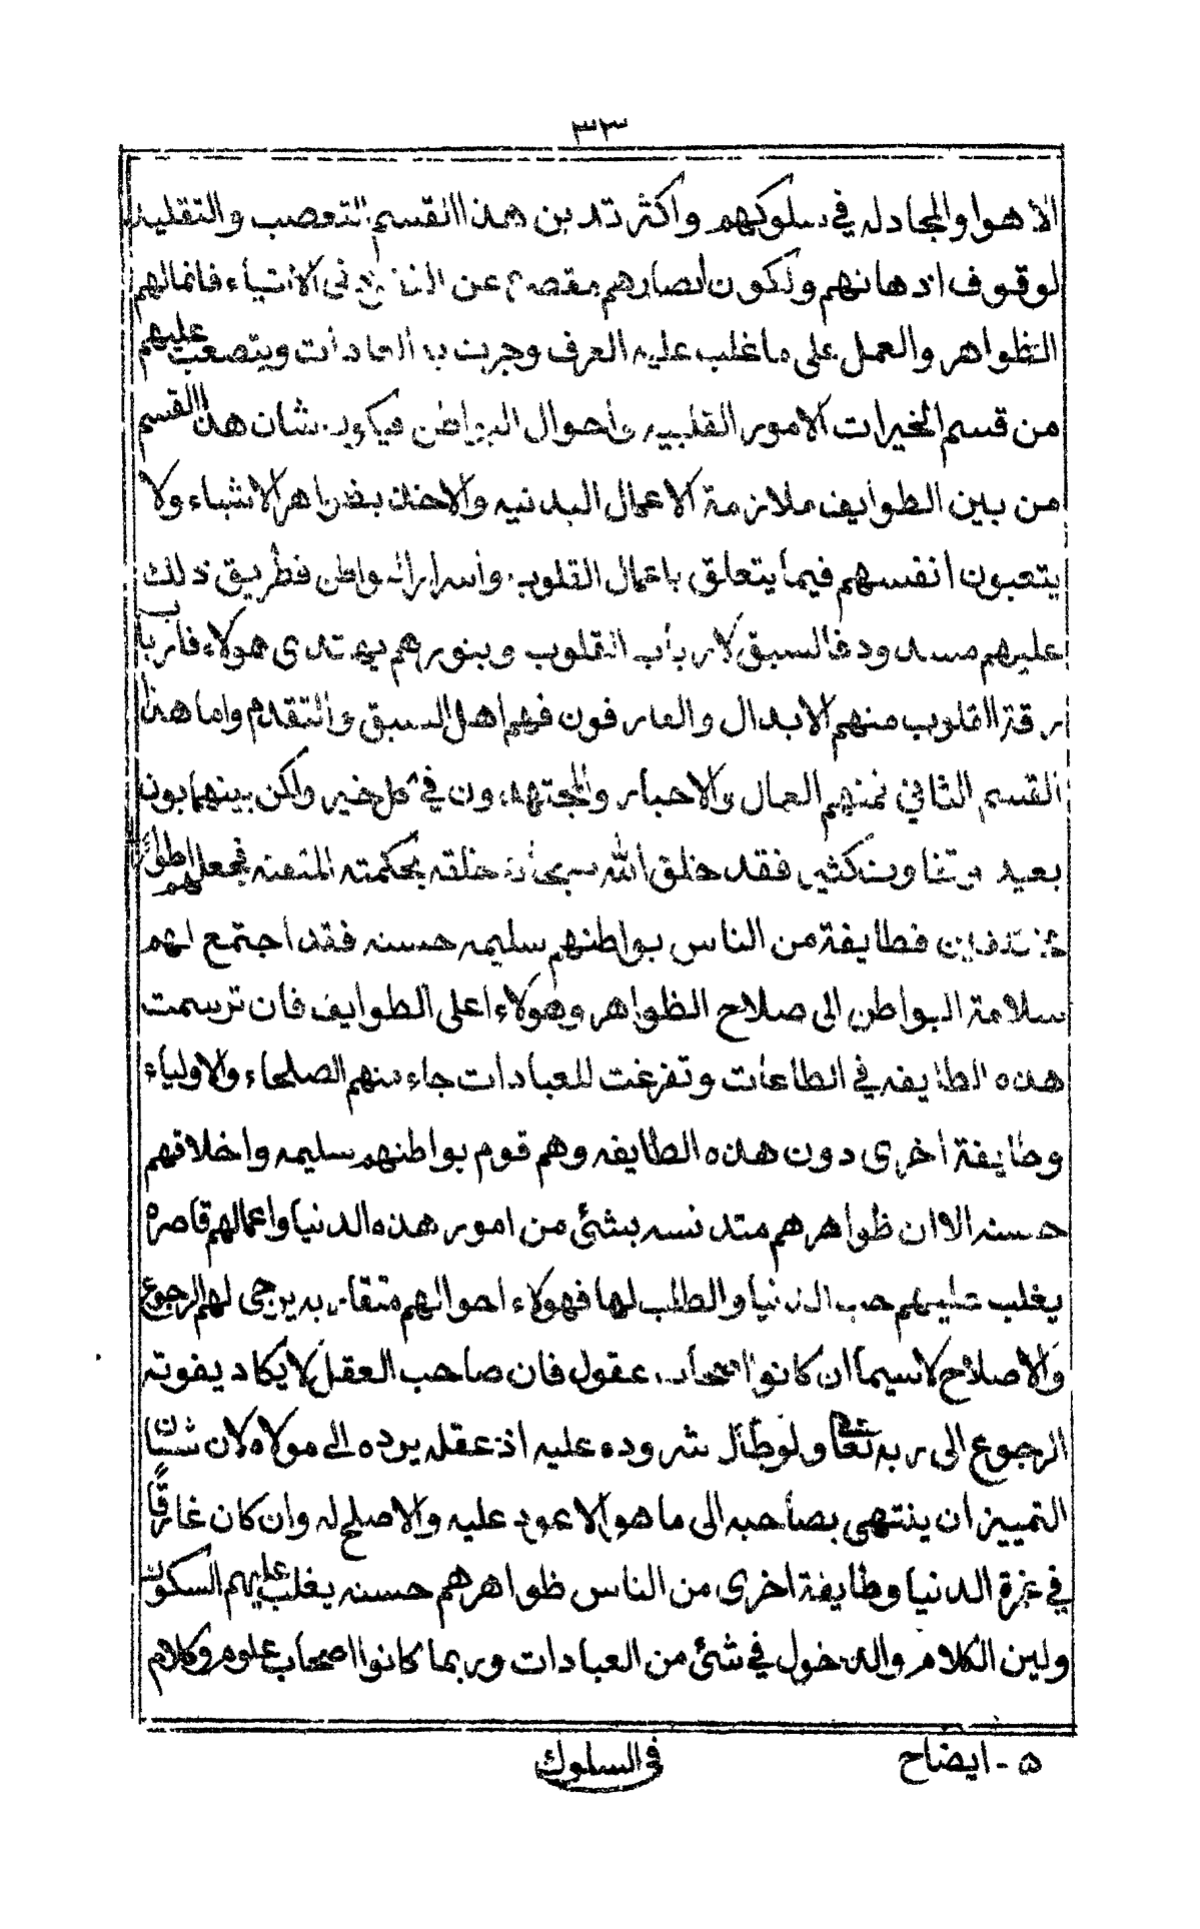 ٣٣
الاهوا والمجادله في سلوكهم واكثر تدين هذا القسم التعصب والتقليد
لوقوف اذهانهم ولكون ابصارهم عن في الاشياء فانمالهم
الظواهر والعمل على ما غلب عليه العرف وجرت به العادات ويتصعب عليهم
من قسم الخيرات الامور القلبيه واحوال البواطن شان هذا القسم
من بين الطوايف ملازمة الاعمال البدنيه والاخذ بظواهر الاشياء ولا
يتعبون انفسهم فيما يتعلق باعمال القلوب واسرار البواطن فطريق ذلك
عليهم مسدود فالسبق لارباب القلوب وبنورهم يهتدى هولاء فارباب
رقة القلوب منهم الابدال والعارفون فهم اهل السبق والتقدم واما هذا
القسم الثاني فمنهم العمال والاحبار والمجتهدون في كل خير ولكن بينهما بون
بعيد وتفاوت كثير فقد خلق الله سبحانه خلقه بحكمته المتقنه فجعلهم
فطايفة من الناس بواطنهم سليمه حسنه فقد اجتمع لهم
سلامة البواطن الى صلاح الظواهر وهولاء اعلى الطوايف فان ترسمت
هذه الطايفه في الطاعات وتفرغت للعبادات جاء منهم الصلحاء والاولياء
وطايفة اخرى دون هذه الطايفه وهم قوم بواطنهم سليمه واخلاقهم
حسنه الا ان ظواهرهم متدنسه بشئ من امور هذه الدنيا واعمالهم قاصره
يغلب عليهم حب الدنيا والطلب لها فهولاء احوالهم متقاربه يرجى لهم الرجوع
والاصلاح لاسيما ان كانوا اصحاب عقول فان صاحب العقل لا يكاد يفوته
الرجوع الى ربه تعالى ولو طال شروده عليه اذ عقله يرده الى مولاه لان شان
التمييز ان ينتهى بصاحبه الى ما هو الاعود عليه والاصلح له وان كان غارقًا
في غمرة الدنيا وطايفة اخرى من الناس ظواهرهم حسنه يغلب عليهم السكون
ولين الكلام والدخول في شئ من العبادات وربما كانوا اصحاب علوم وكلام
٥ - ايضاح
في السلوك